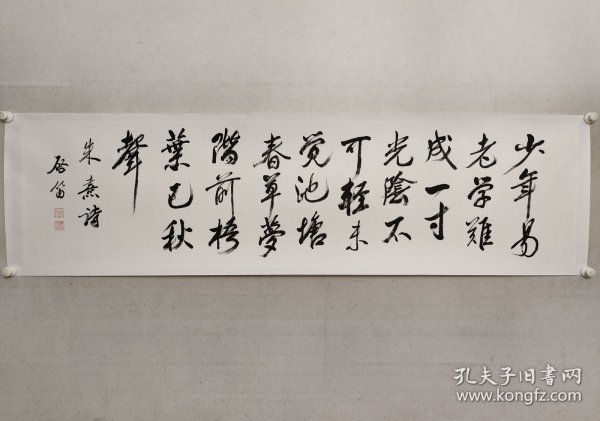 少年易
老学难
成一寸
光陰不
可轻未
觉池塘
春草夢
階前梧
葉已秋
聲
朱熹詩
启笛
孔夫子旧书网
www.kongfz.com